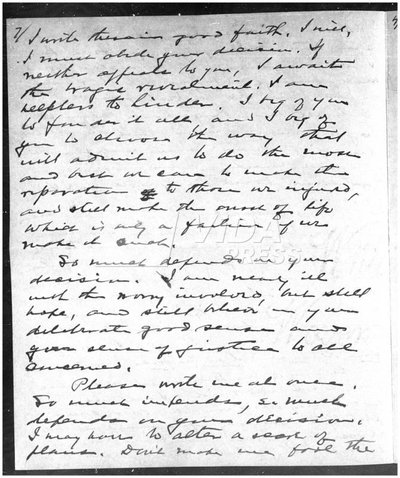 7/ I write this in good faith. I will,
I must abide your decision. If
neither appeals to you, I await
the tragic I am
helpless to hinder. I beg of you
to ponder it all and I beg of
you to choose the way that
will admit us to do the most
and best we can to make the
reparation to those we injured,
and still make the most of life
which is only a failure if we
make it such.
So much depends on your
decision. I am nearly ill
with the worry involved, but still
hope, and still believe in your
deliberate good sense and
your sense of justice to all
concerned.
Please write me at once.
So much impends, so much
depends on your decision.
I may have to alter a score of
plans. Don't make me fool the